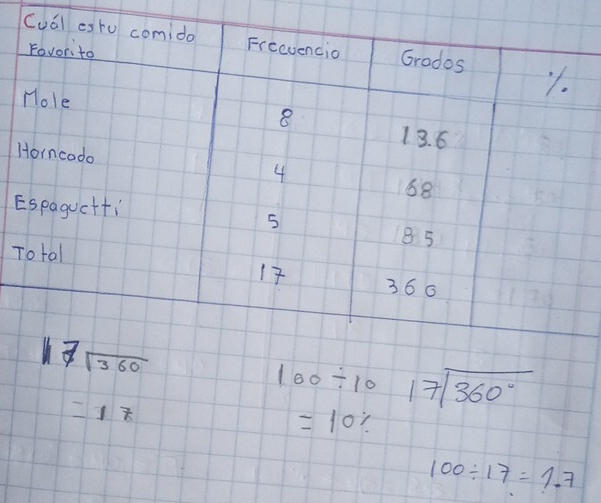 Cuál estu comida Favorito | Frecuencia | Grados | %
Mole | 8 | 13.6
Horncado | 4 | 68
Espaguctti | 5 | 85
Total | 17 | 360
17 √360
= 17
100 ÷ 10
= 10%
17 √360°
100 ÷ 17 = 1.7